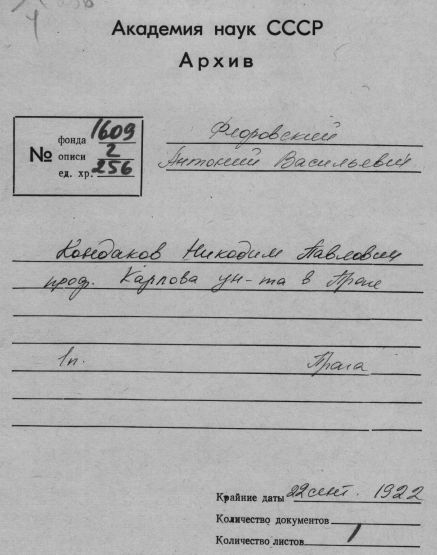 Академия наук СССР
Архив
фонда 1609
№ описи 2
ед. хр. 256
Флоровский
Антоний Васильевич
Кондаков Никодим Павлович
проф. Карлова ун-та в Праге
1п. Прага
Крайние даты 22 сент. 1922
Количество документов
Количество листов 1